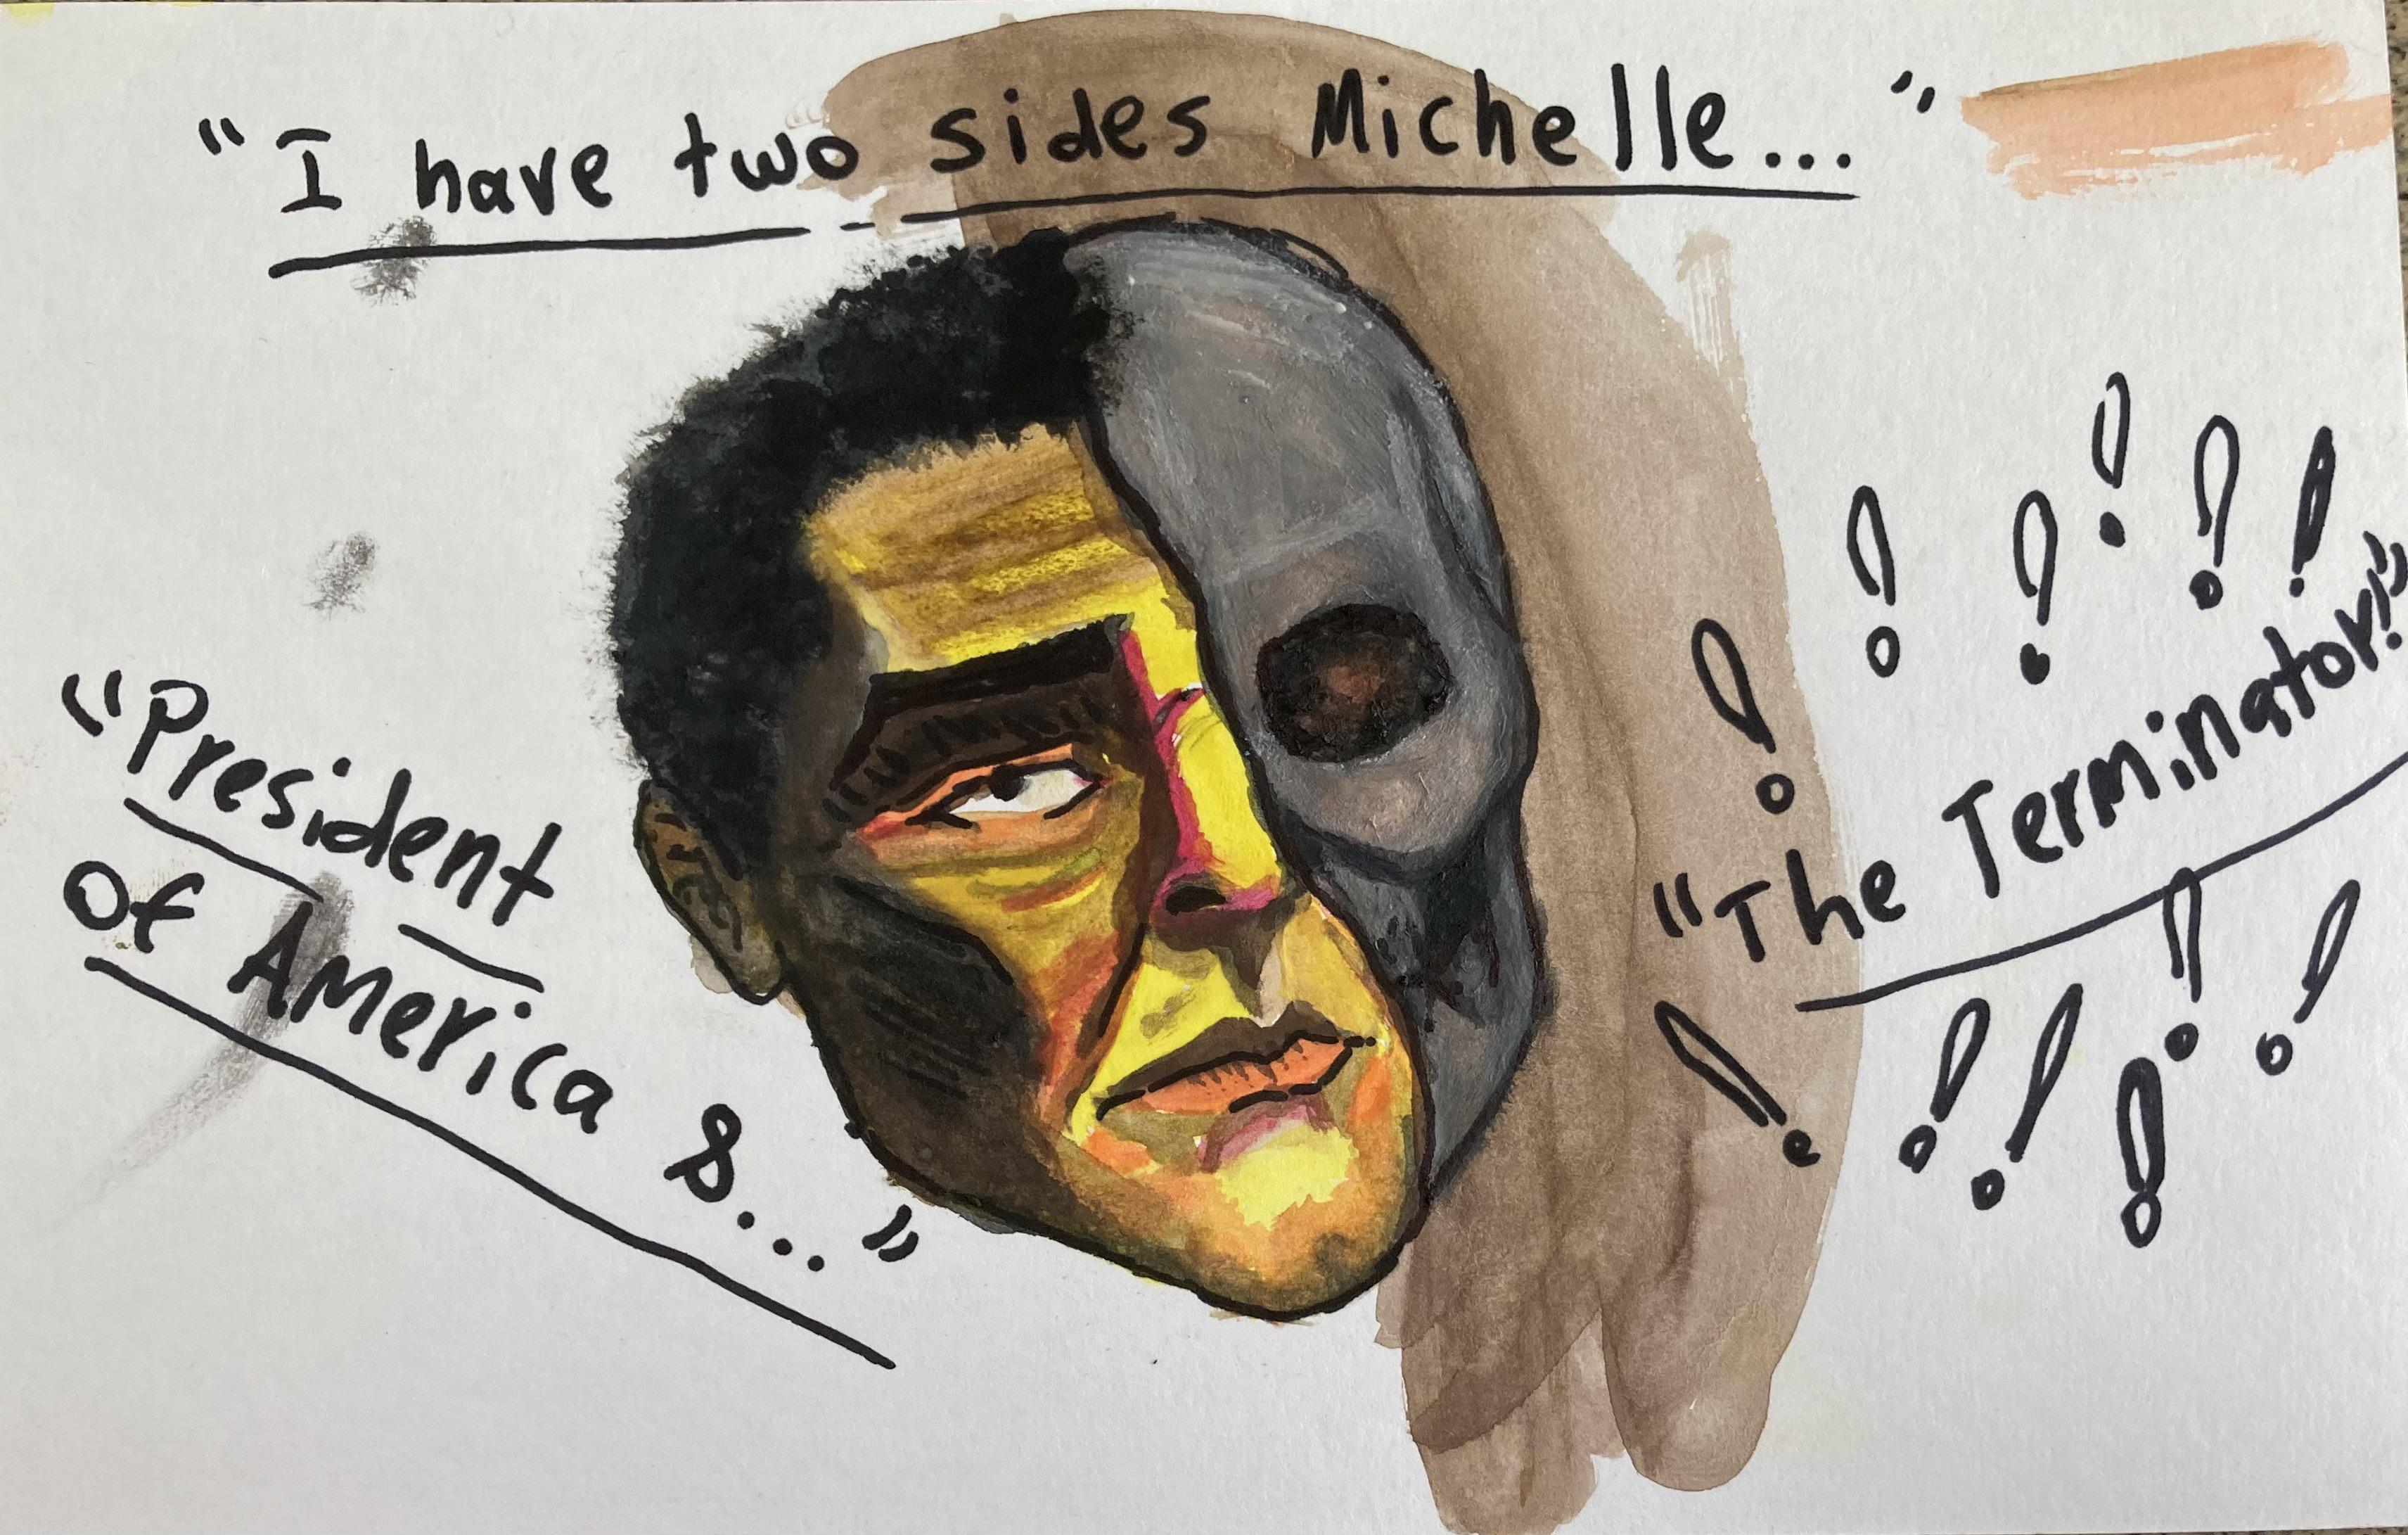 "I have two sides Michelle..."
"President
Of America &..."
! ! ! ! ! !
"The Terminator!"
! ! ! ! ! !